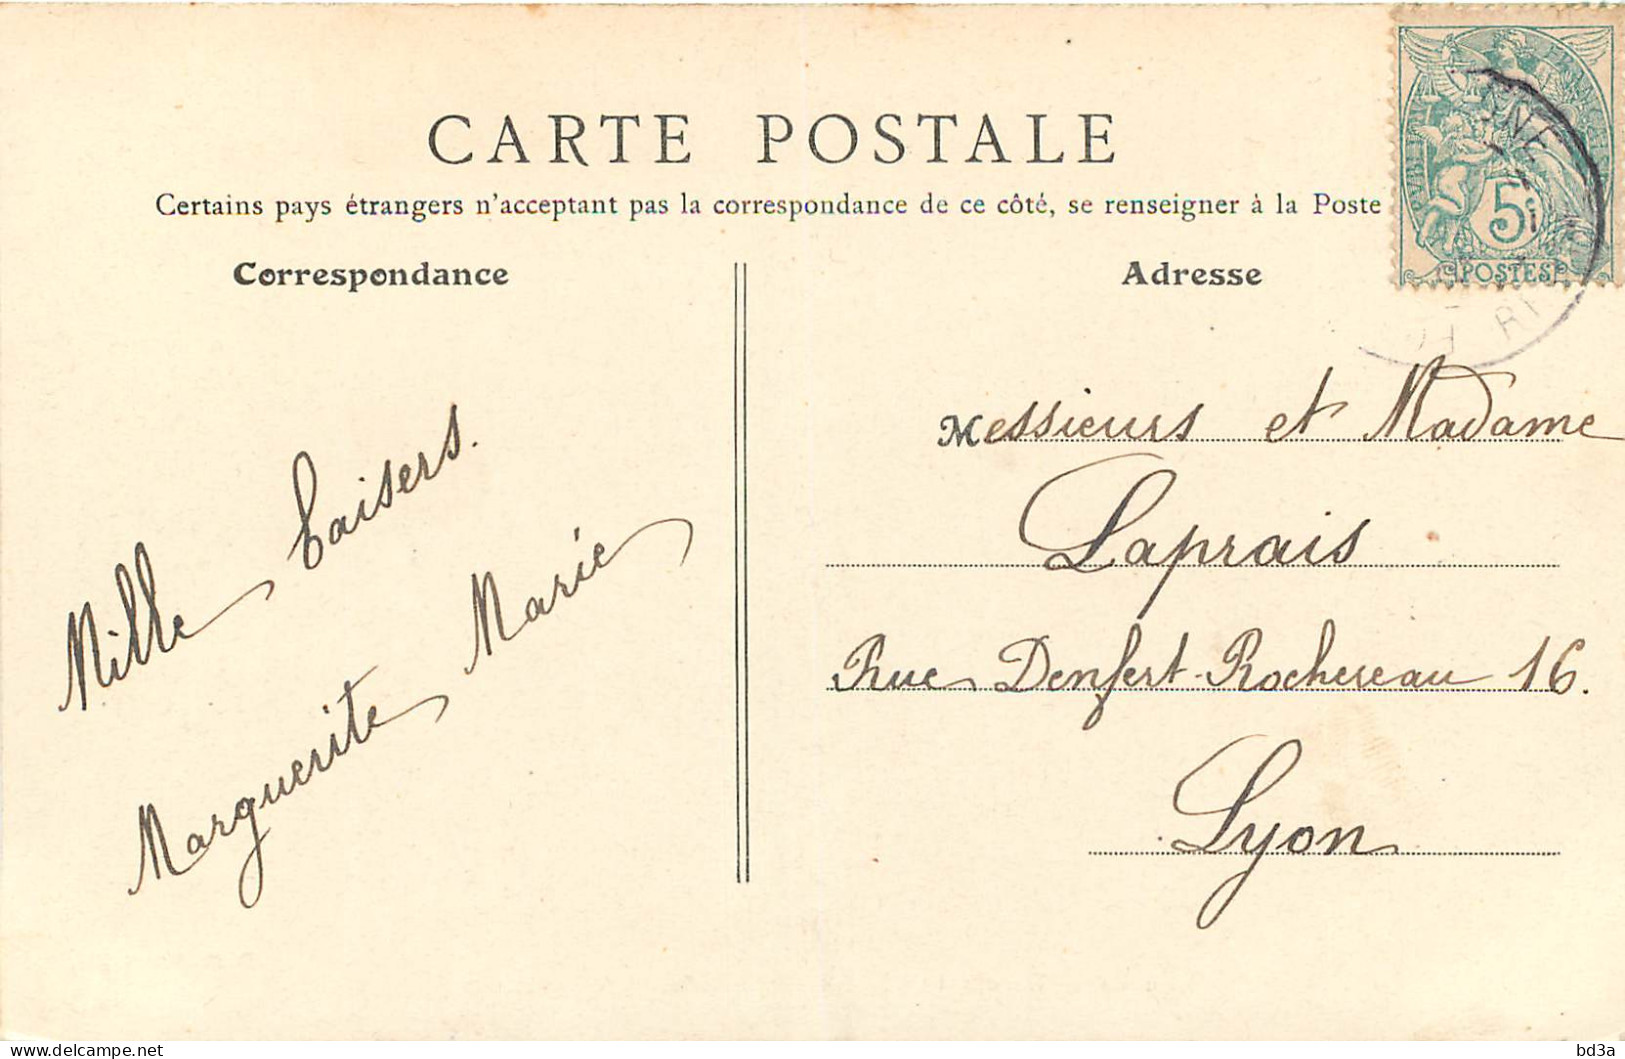 CARTE POSTALE
Certains pays étrangers n'acceptant pas la correspondance de ce côté, se renseigner à la Poste
Correspondance
Adresse
Mille baisers.
Marguerite Marie
Messieurs et Madame
Laprais
Rue Denfert-Rochereau 16.
Lyon
5c
POSTES
delcampe.net
bd3a